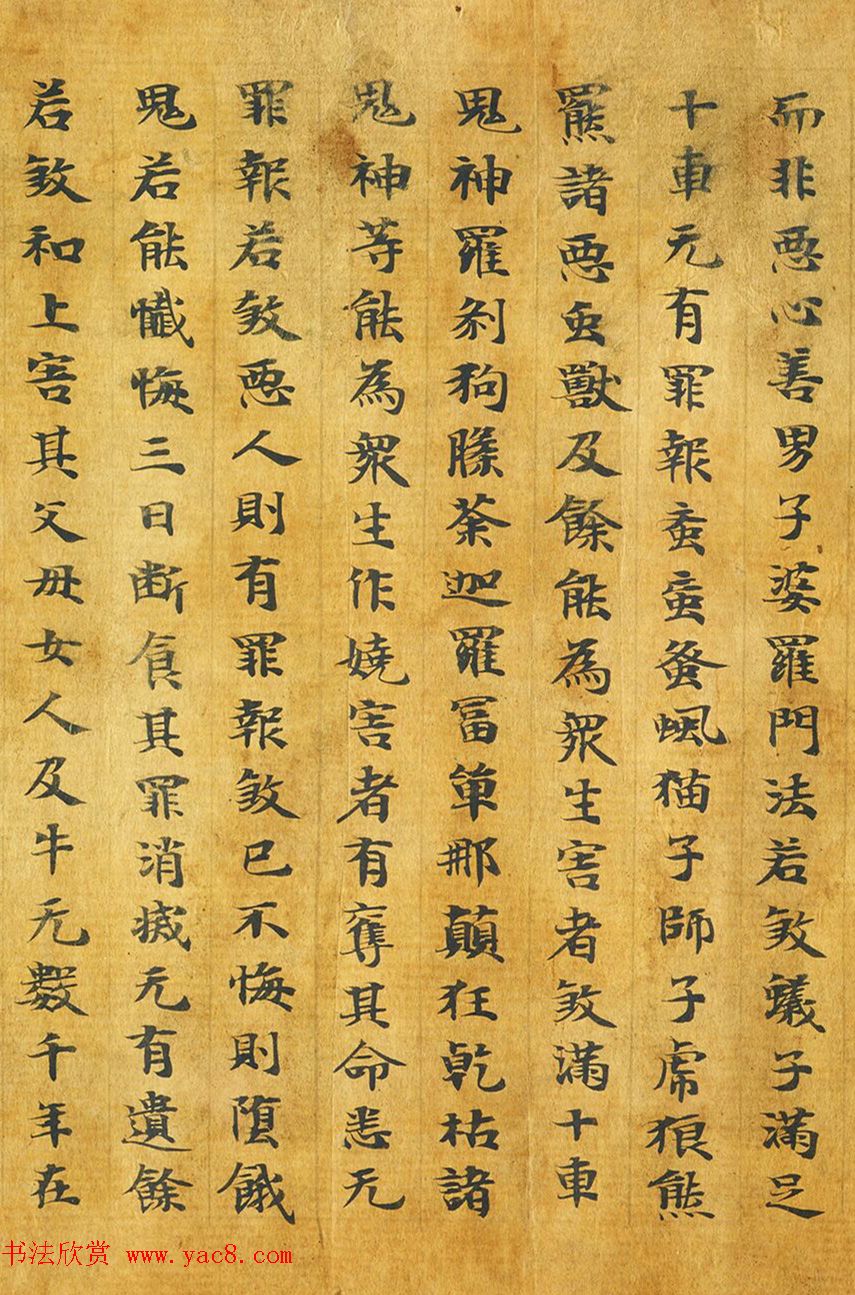 而非恶心善男子婆羅門法若煞蟻子滿足
十車无有罪報蚉䖟蚤虱猫子師子虎狼熊
羆諸恶虫獸及餘能為衆生害者煞滿十車
鬼神羅刹狗槃荼迦羅富單那顛狂乾枯諸
鬼神等能為衆生作嬈害者有奪其命悉无
罪報若煞恶人則有罪報煞已不悔則堕餓
鬼若能懺悔三日断食其罪消滅无有遺餘
若煞和上害其父母女人及牛无數千年在
书法欣赏 www.yac8.com